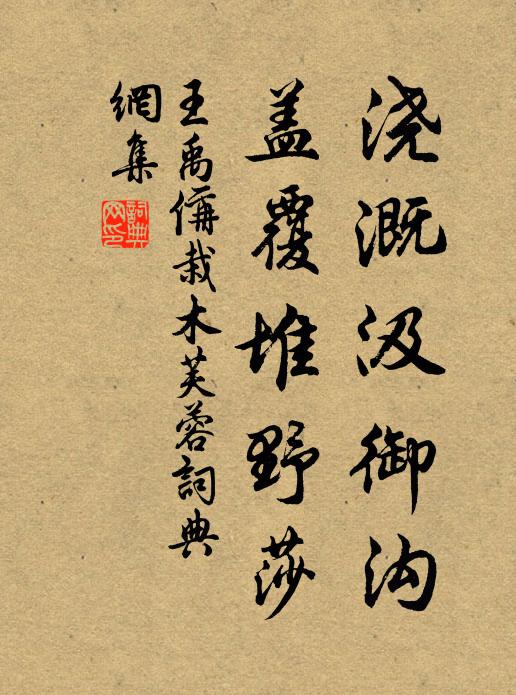 浇溉汲御沟
盖覆堆野莎
王禹偁栽木芙蓉詞典
網集
詞典
网印